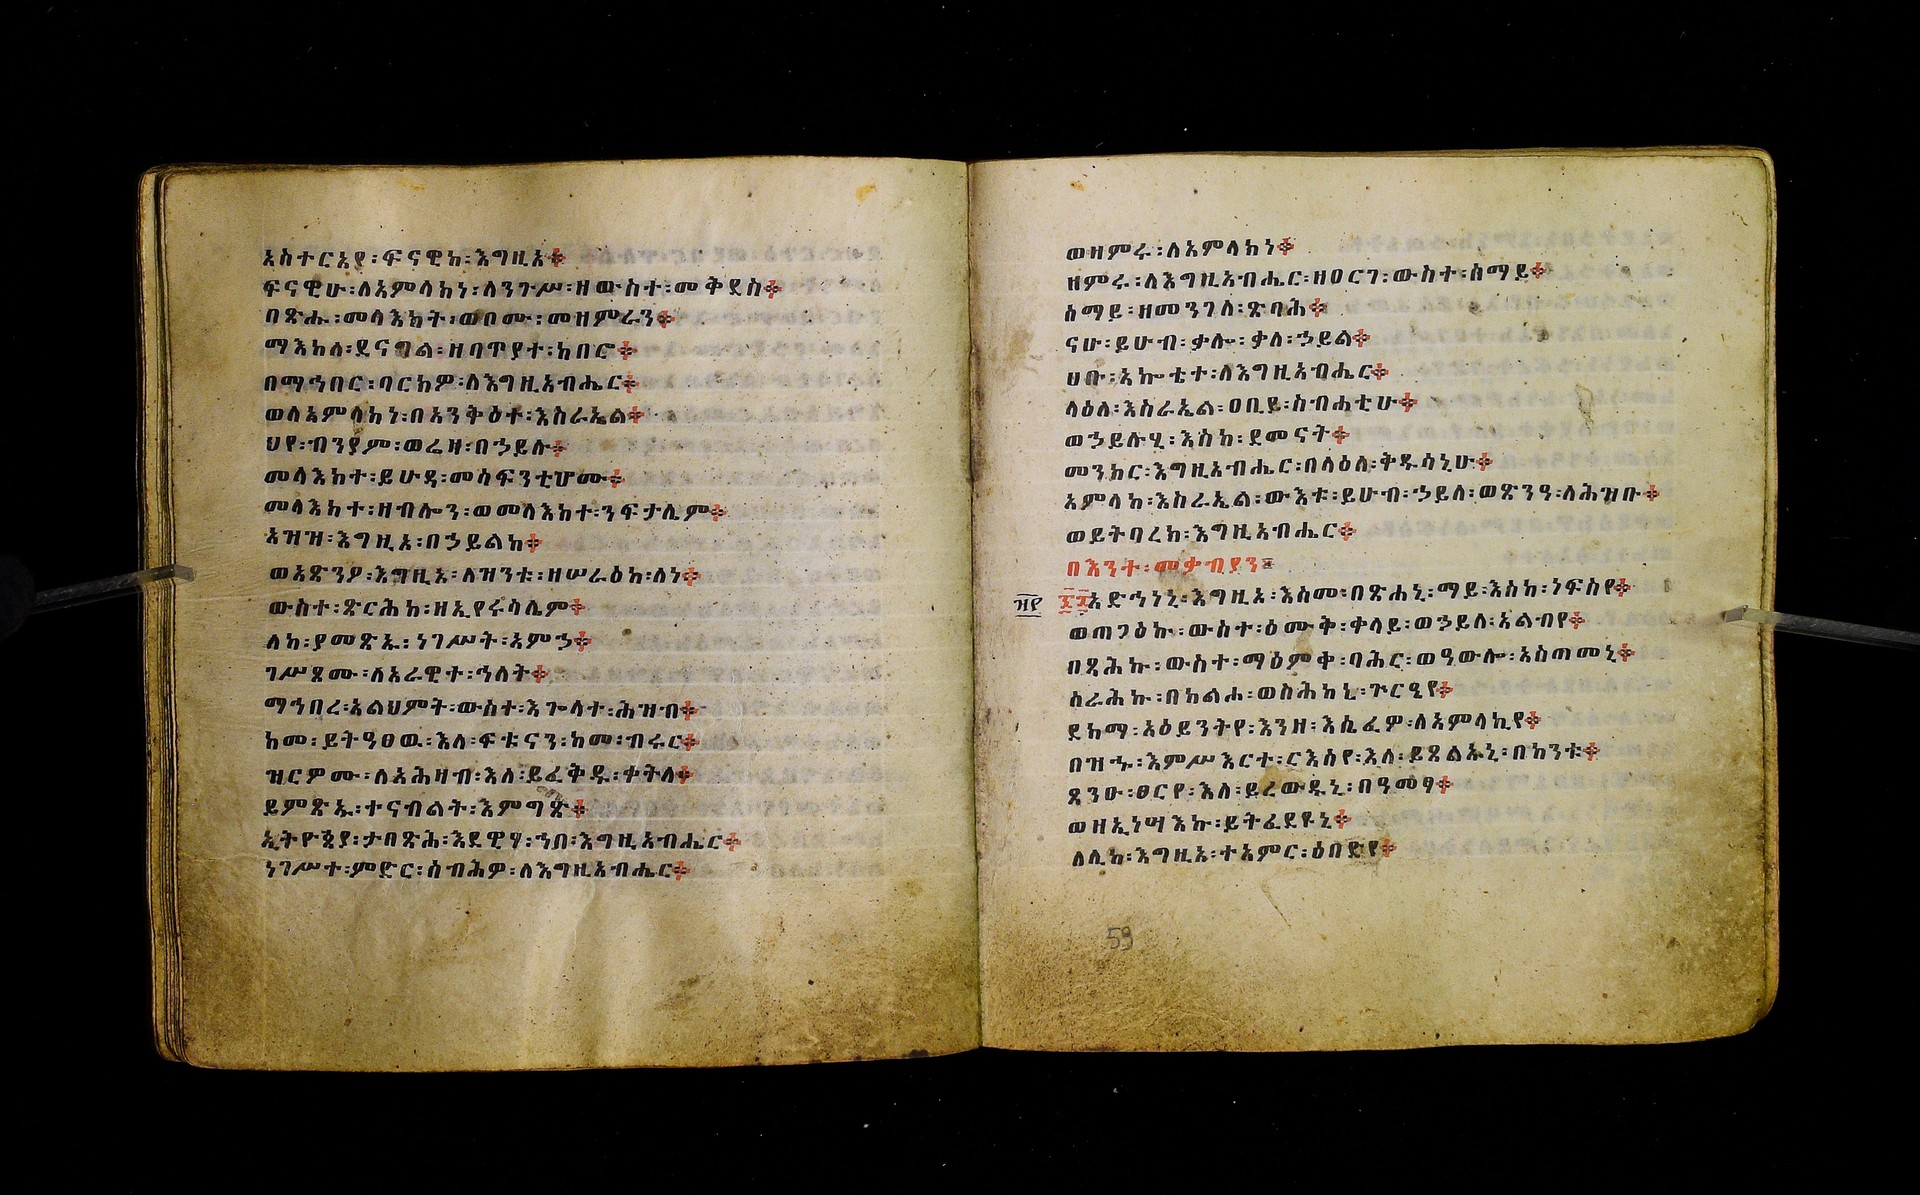 አስተርአየ፡ፍናዊከ፡እግዚአ፨
ፍናዊሁ፡ለአምላክነ፡ለንጉሥ፡ዘውስተ፡መቅደስ፨
በጽሑ፡መላእክት፡ወበሙ፡መዘምራን፨
ማእከለ፡ደናግል፡ዘባጥያተ፡ከበሮ፨
በማኅበር፡ባርክዎ፡ለእግዚአብሔር፨
ወለአምላክነ፡በአንቅዕተ፡እስራኤል፨
ህየ፡ብንያም፡ወሬዛ፡በኃይሉ፨
መላእክተ፡ይሁዳ፡መሳፍንቲሆሙ፨
መላእክተ፡ዛብሎን፡ወመላእክተ፡ንፍታሌም፨
አዝዝ፡እግዚአ፡በኃይልከ፨
ወአጽንዖ፡እግዚአ፡ለዝንቱ፡ዘሠራዕከ፡ለነ፨
ውስተ፡ጽርሕከ፡ዘኢየሩሳሌም፨
ለከ፡ያመጽኡ፡ነገሥት፡አምኃ፨
ገሥጾሙ፡ለአራዊተ፡ኅለት፨
ማኅበረ፡አልህምት፡ውስተ፡እጐላተ፡ሕዝብ፨
ከመ፡ይትዓፀዉ፡እለ፡ፍቱናን፡ከመ፡ብሩር፨
ዝርዎሙ፡ለአሕዛብ፡እለ፡ይፈቅዱ፡ቀትለ፨
ይምጽኡ፡ተናብልት፡እምግጽ፨
ኢትዮጵያ፡ታበጽሕ፡እደዊሃ፡ኀበ፡እግዚአብሔር፨
ነገሥተ፡ምድር፡ሰብሕዎ፡ለእግዚአብሔር፨
ወዘምሩ፡ለአምላክነ፨
ዘምሩ፡ለእግዚአብሔር፡ዘዐርገ፡ውስተ፡ሰማይ፨
ሰማይ፡ዘመንገለ፡ጽባሕ፨
ናሁ፡ይሁብ፡ቃሎ፡ቃለ፡ኃይል፨
ሀቡ፡አኰቴተ፡ለእግዚአብሔር፨
ላዕለ፡እስራኤል፡ዐቢይ፡ስብሐቲሁ፨
ወኃይሉሂ፡እስከ፡ደመናት፨
መንክር፡እግዚአብሔር፡በላዕለ፡ቅዱሳኒሁ፨
አምላከ፡እስራኤል፡ውእቱ፡ይሁብ፡ኃይለ፡ወጽንዓ፡ለሕዝቡ፨
ወይትባረክ፡እግዚአብሔር፨
በእንተ፡መቃብያን፡፡
፷፰ አድኅነኒ፡እግዚአ፡እስመ፡በጽሐኒ፡ማይ፡እስከ፡ነፍስየ፨
ወጠጋዕኩ፡ውስተ፡ዕሙቅ፡ቀላይ፡ወኃይለ፡አልብየ፨
በጻሕኩ፡ውስተ፡ማዕምቀ፡ባሕር፡ወዓውሎ፡አስጠመኒ፨
ሰራሕኩ፡በከልሐ፡ወስሕከኒ፡ጕርዔየ፨
ደክማ፡አዕይንትየ፡እንዘ፡እሴፈዎ፡ለአምላኪየ፨
በዝኁ፡እምሥእርተ፡ርእስየ፡እለ፡ይጸልኡኒ፡በከንቱ፨
ጸንዑ፡ፀርየ፡እለ፡ይረውዱኒ፡በዓመፃ፨
ወዘኢነሣእኩ፡ይትፈደዩኒ፨
ለሊከ፡እግዚኦ፡ተአምር፡ዕበድየ፨
59